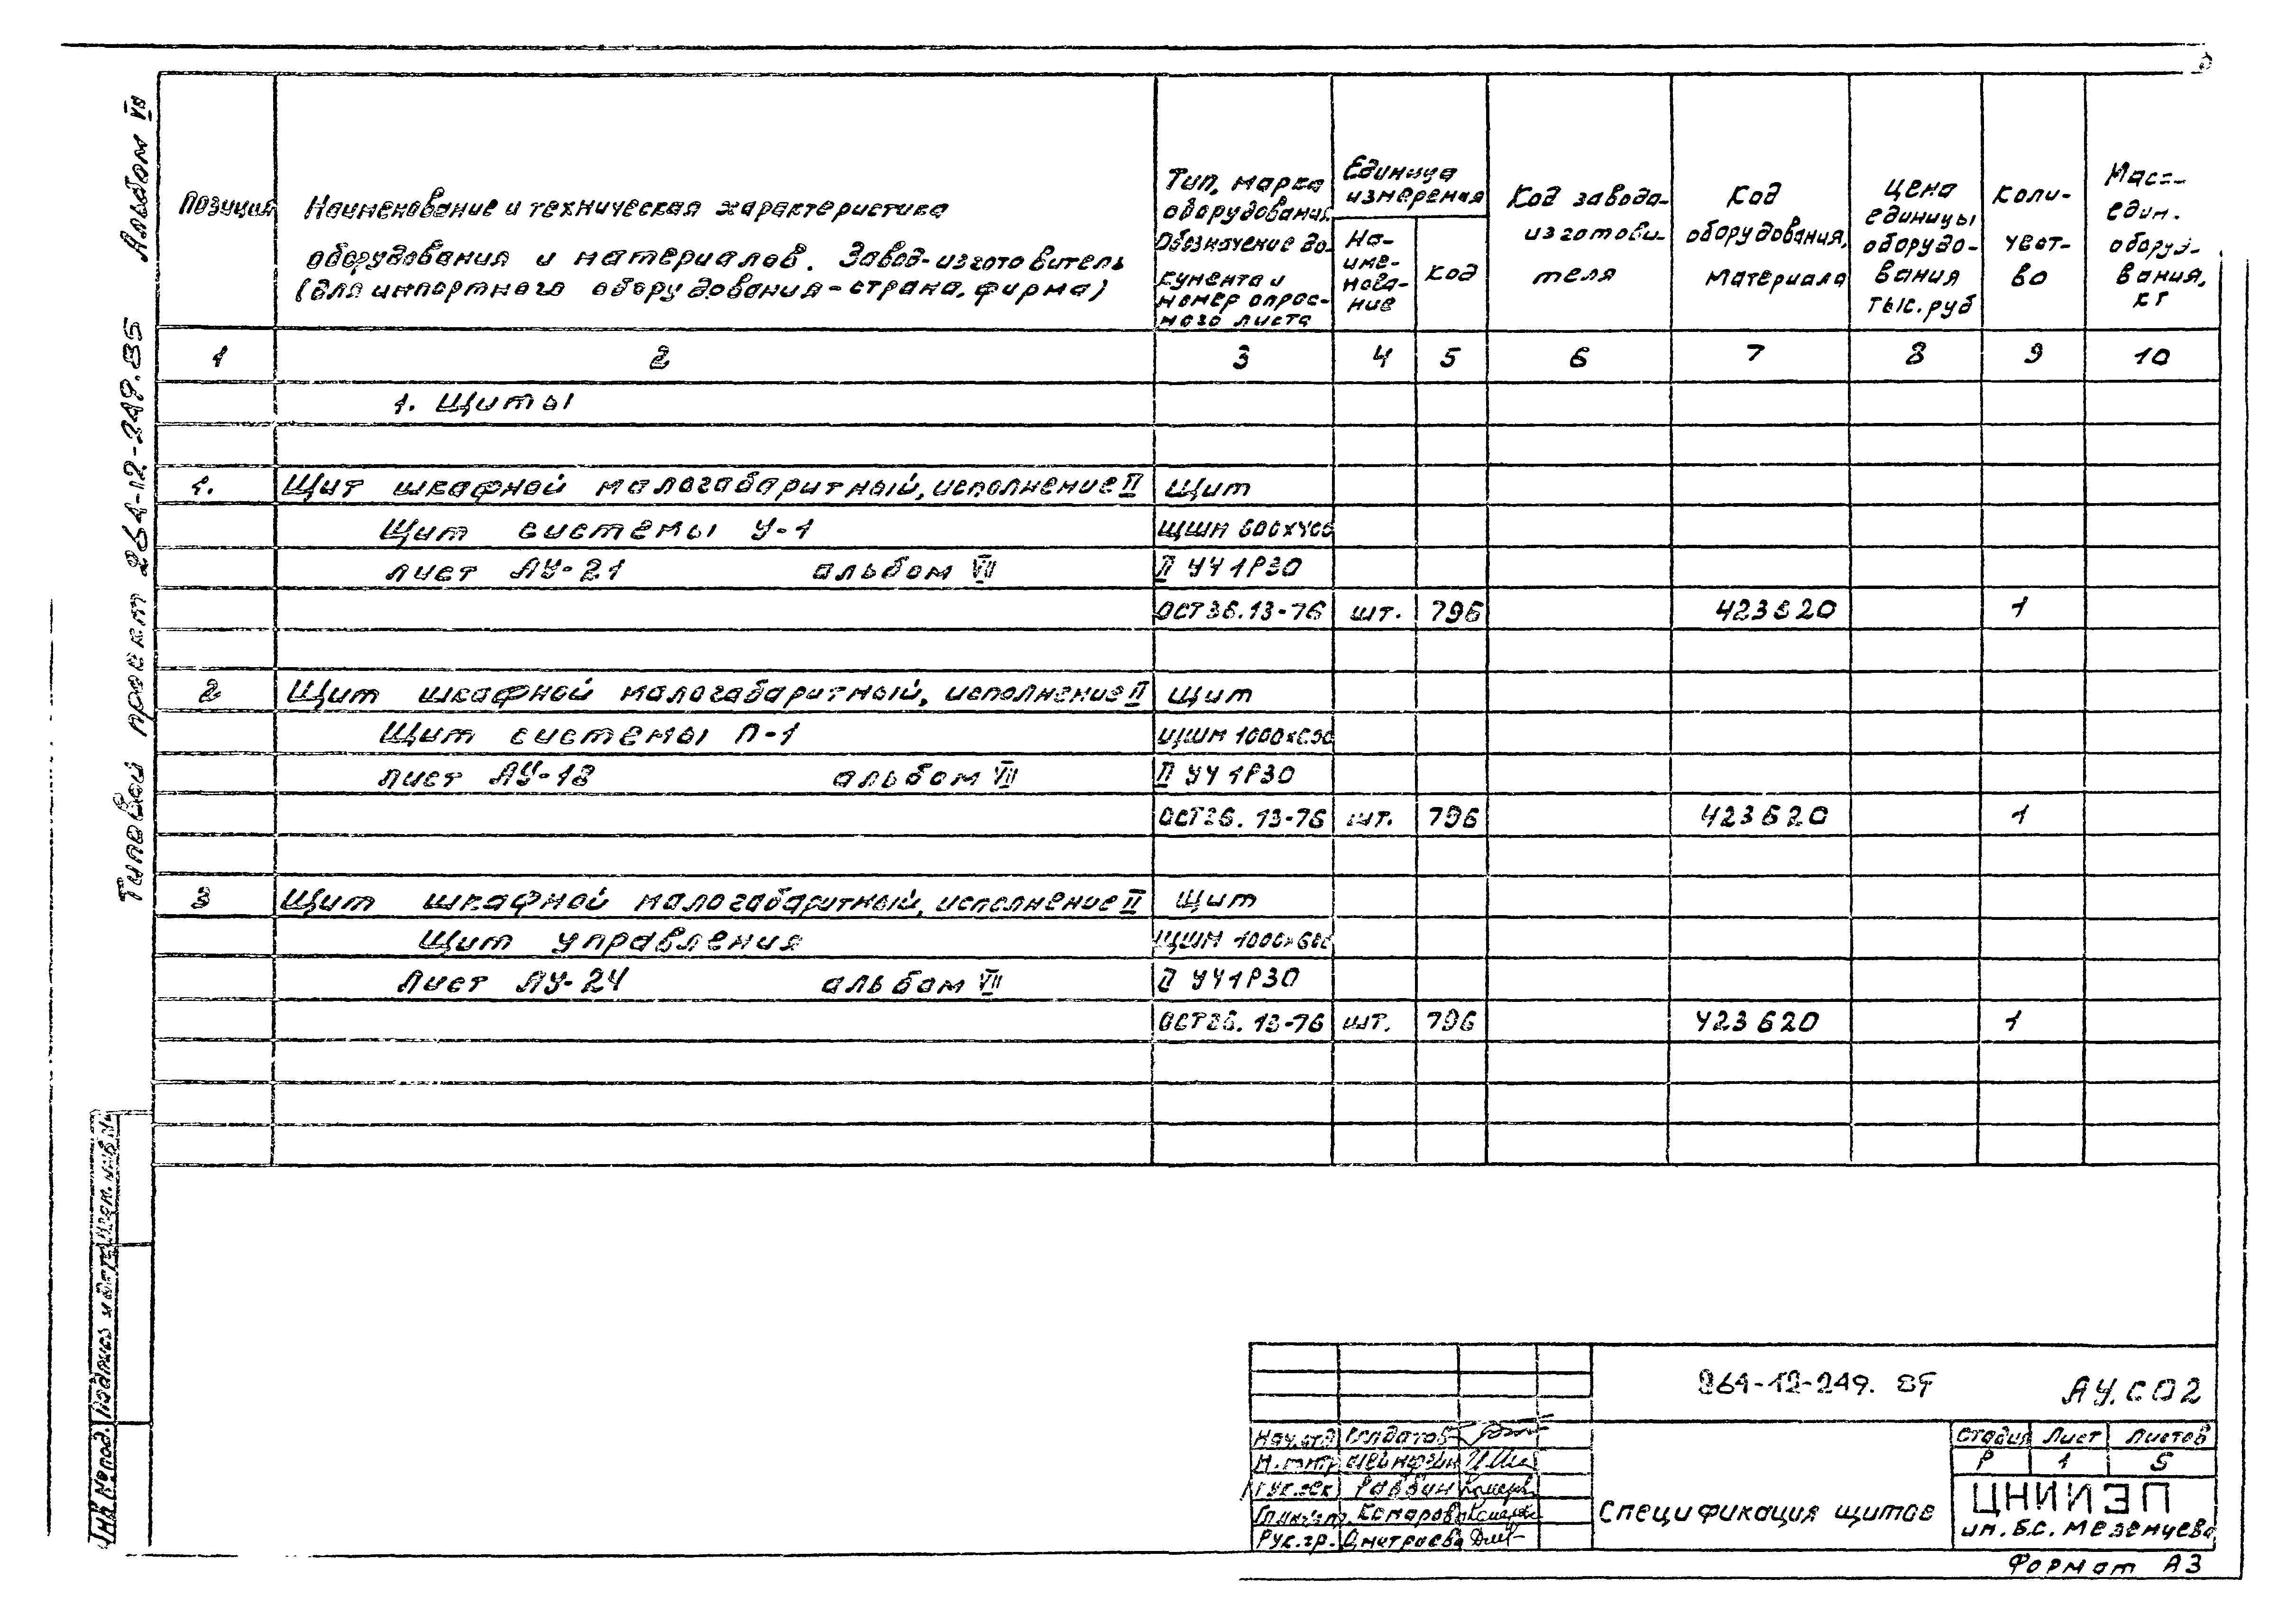 Альбом VII
Типовой проект 264-12-249.85
Позиция
Наименование и техническая характеристика
оборудования и материалов. Завод-изготовитель
(для импортного оборудования-страна, фирма)
Тип, марка
оборудования
Обозначение до-
кумента и
номер опрос-
ного листа
Единица
измерения
На-
име-
нова-
ние
код
Код завода-
изготови-
теля
Код
оборудования,
материала
Цена
единицы
оборудо-
вания
тыс. руб
Коли-
чест-
во
Масса
един.
оборудо-
вания,
кг
1 2 3 4 5 6 7 8 9 10
1. Щиты
1. Щит шкафной малогабаритный, исполнение II Щит
Щит системы У-1 ЩШМ 600х400
лист АУ-21 альбом VII II УЧ 1Р30
ОСТ36.13-76 шт. 796 423620 1
2 Щит шкафной малогабаритный, исполнение II Щит
Щит системы П-1 ЩШМ 1000х600
лист АУ-18 альбом VII II УЧ 1Р30
ОСТ36.13-76 шт. 796 423620 1
3 Щит шкафной малогабаритный, исполнение II Щит
Щит управления ЩШМ 1000х600
Лист АУ-24 альбом VII II УЧ 1Р30
ОСТ36.13-76 шт. 796 423620 1
Инв № под. Подпись и дата Взам. инв №
264-12-249. 85 АУ.СО2
Нач.отд Солдатов
Н.контр
Рук.сек Раввин
Комарова
Рук.гр. Дмитриева
Спецификация щитов
Стадия Лист Листов
Р 1 5
ЦНИИЭП
им. Б.С. Мезенцева
Формат А3